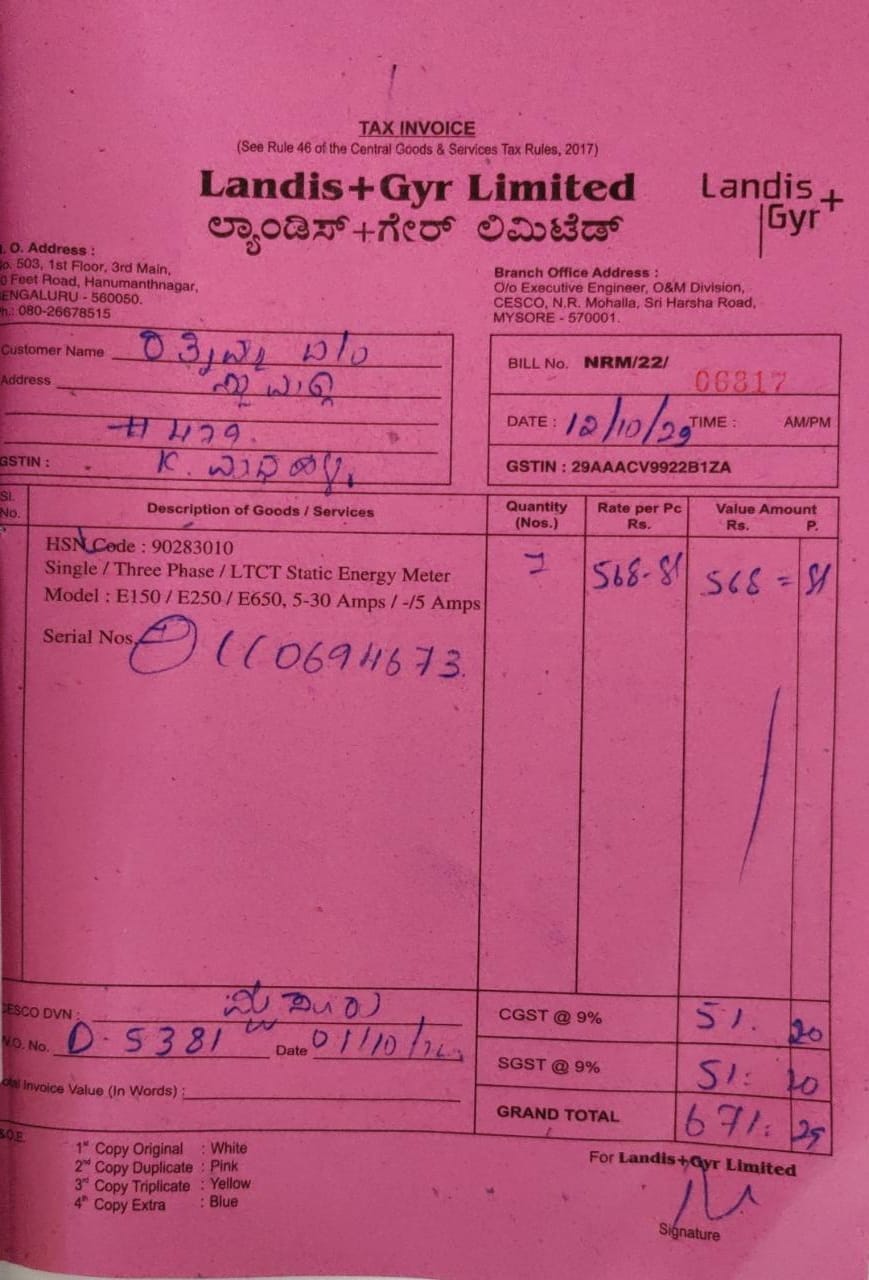 TAX INVOICE
(See Rule 46 of the Central Goods & Services Tax Rules, 2017)
Landis+Gyr Limited
ಲ್ಯಾಂಡಿಸ್+ಗೇರ್ ಲಿಮಿಟೆಡ್
Landis+
Gyr
. O. Address :
o. 503, 1st Floor, 3rd Main,
0 Feet Road, Hanumanthnagar,
ENGALURU - 560050.
h.: 080-26678515
Branch Office Address :
O/o Executive Engineer, O&M Division,
CESCO, N.R. Mohalla, Sri Harsha Road,
MYSORE - 570001.
Customer Name
Address
# 479.
GSTIN : K.
BILL No. NRM/22/ 06817
DATE : 12/10/ TIME : AM/PM
GSTIN : 29AAACV9922B1ZA
Sl. No. Description of Goods / Services Quantity (Nos.) Rate per Pc Rs. Value Amount Rs. P.
HSN Code : 90283010
Single / Three Phase / LTCT Static Energy Meter
Model : E150 / E250 / E650, 5-30 Amps / -/5 Amps
1 568-81 568 = 81
Serial Nos. 110694673.
ESCO DVN :
.O. No. D-5381 Date 01/10/
otal Invoice Value (In Words) :
CGST @ 9% 51. 20
SGST @ 9% 51: 20
GRAND TOTAL 671:
&O.E.
1st Copy Original : White
2nd Copy Duplicate : Pink
3rd Copy Triplicate : Yellow
4th Copy Extra : Blue
For Landis+Gyr Limited
Signature